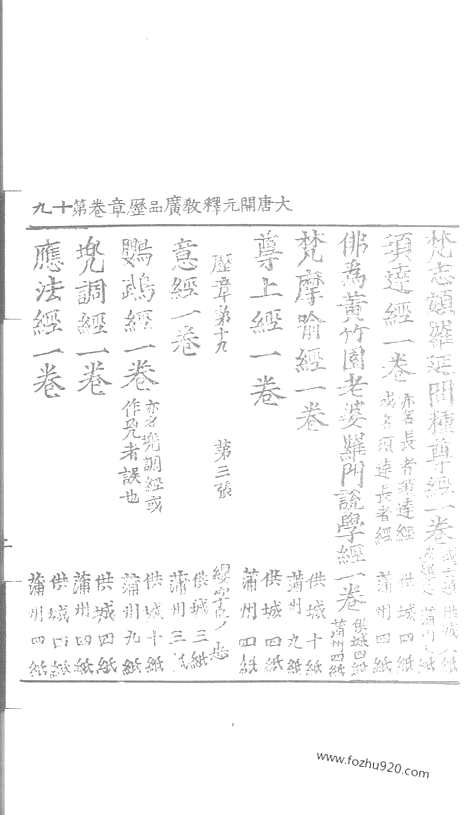 大唐開元釋教廣品歷章卷第十九
梵志頞羅延問種尊經一卷
須達經一卷 亦名長者須達經 或名須達長者經 供城四紙 蒲州四紙
佛為黃竹園老婆羅門說學經一卷 供城四紙 蒲州四紙
梵摩喻經一卷 供城十紙 蒲州九紙
尊上經一卷 供城四紙 蒲州四紙
歷章第十九 第三張
意經一卷 供城三紙 蒲州三紙
鸚鵡經一卷 亦名兜調經或 作兒者誤也 供城十紙 蒲州九紙
兜調經一卷 供城四紙 蒲州四紙
應法經一卷 供城四紙 蒲州四紙
www.fozhu920.com